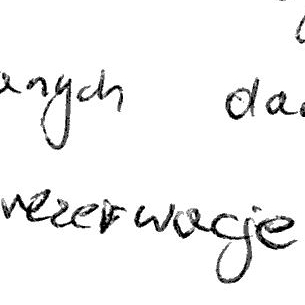 anych da
rezerwacje